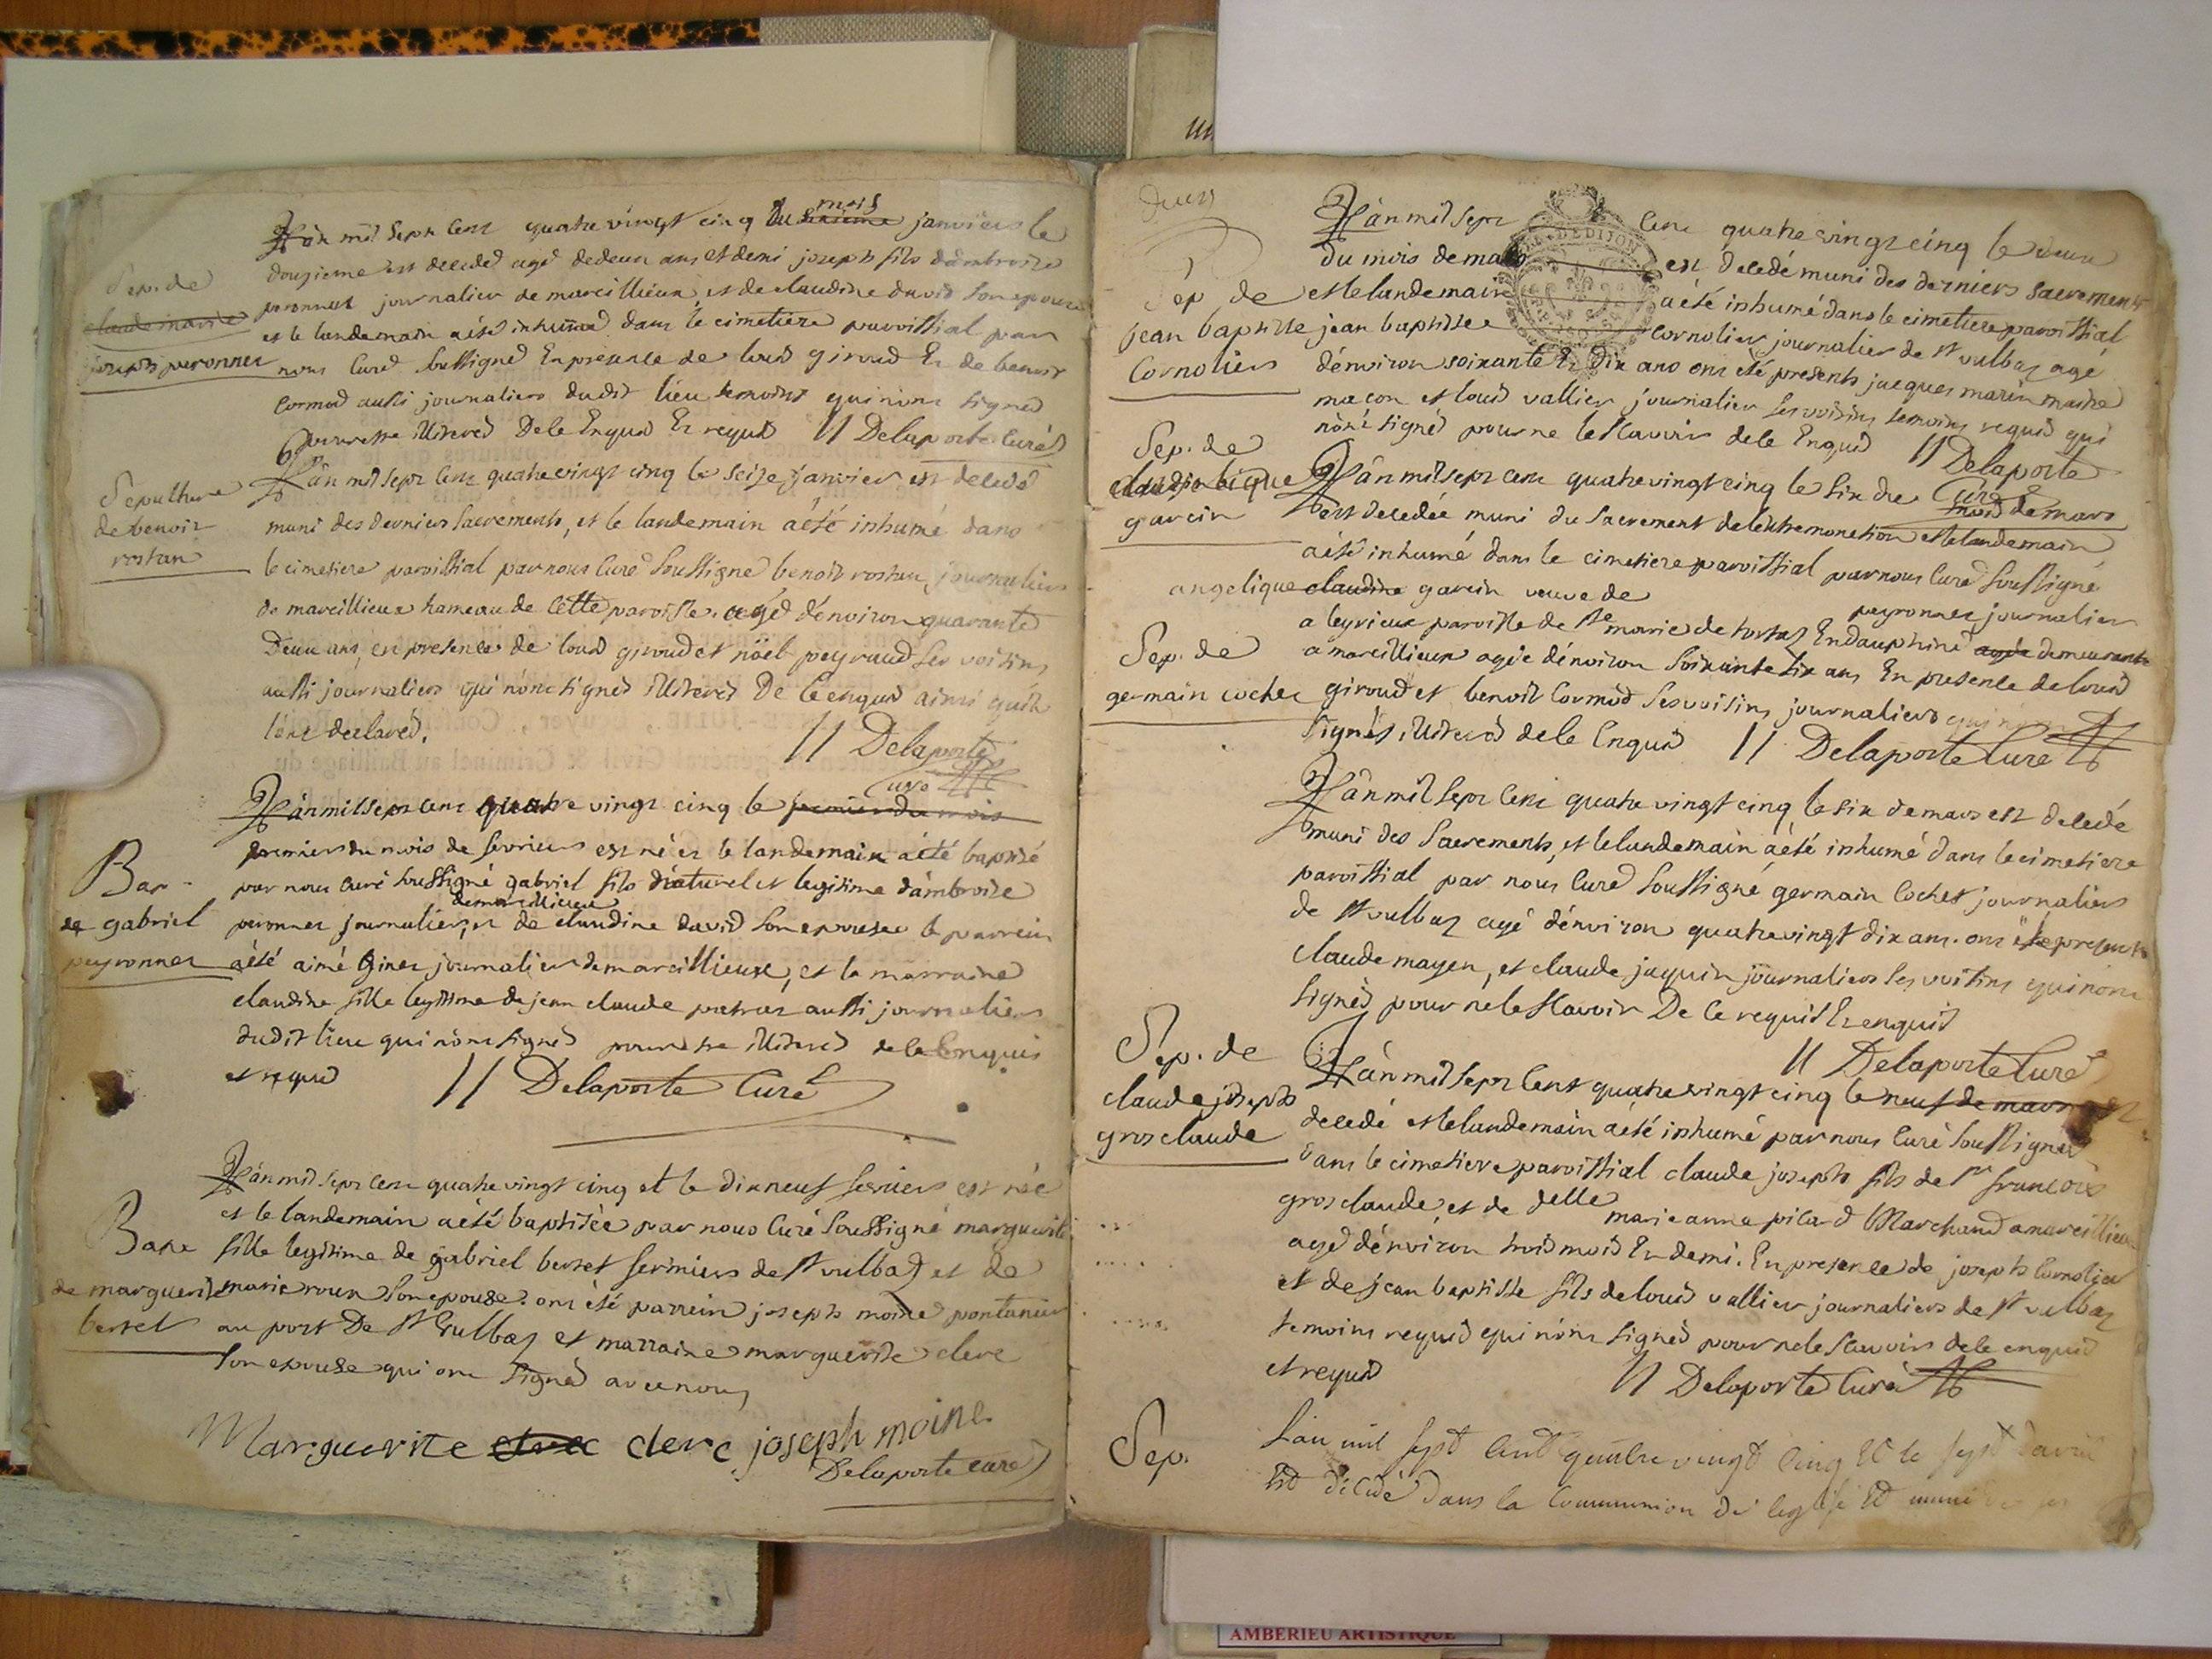 Sep. de
claude marie
joseph peronnet
L'an mil sept cent quatre vingt cinq du mois janvier le
douzieme est decedé agé de deux ans et demi joseph fils d'ambroise
peronnet journalier de marcillieux, et de claudine david son epouse
et le landemain a été inhumé dans le cimetiere paroissial par
nous curé soussigné En presence de louis giroud Et de benoit
cormod aussi journaliers dudit lieu temoins qui n'ont signés
pour etre illiterés De le Enquis Et requis // Delaporte Curé
Sepulture
de benoit
rostan
L'an mil sept cent quatre vingt cinq le seize janvier est decedé
muni des derniers sacrements, et le landemain a été inhumé dans
le cimetiere paroissial par nous curé soussigné benoit rostan journalier
de marcillieux hameau de cette paroisse agé d'environ quarante
Deux ans, en presence de louis giroud et nöel peyraud ses voisins
aussi journaliers qui n'ont signés illiterés De le enquis ainsi quils
l'ont declaré.
// Delaporte
Curé
Bap
de gabriel
peyronnet
L'an mil sept cent quatre vingt cinq le premier du mois
premier du mois de fevrier est né et le landemain a été baptisé
par nous curé soussigné gabriel fils naturel et legitime d'ambroise
de marcillieux
peronnet journalier, et de claudine david son epouse le parrein
a été aimé Ginet journalier de marcillieux, et la marraine
claudine fille legitime de jean claude patras aussi journalier
dudit lieu qui n'ont signés pour etre illiterés de le Enquis
et requis // Delaporte Curé
Bapt
de marguerite
berset
L'an mil sept cent quatre vingt cinq et le dix neuf fevrier est née
et le landemain a été baptisée par nous curé soussigné marguerite
fille legitime de gabriel berset fermiers de St vulbas et de
marie roux son epouse. ont été parrein joseph moine pontanier
au port De St Vulbas et marraine marguerite clerc
son epouse qui ont signés avec nous
Marguerite clerc clerc joseph moine
Delaporte curé
Sep de
jean baptiste
Cornolier
L'an mil sept cent quatre vingt cinq le deux
du mois de mars est decedé muni des derniers sacrements
et le landemain a été inhumé dans le cimetiere paroissial
jean baptiste cornolier journalier de St vulbas agé
d'environ soixante Et dix ans ont été presents jacques marin maitre
maçon et louis vallier journalier ses voisins temoins requis qui
n'ont signés pour ne le sçavoir de le Enquis // Delaporte
Curé
Sep. de
garcin
L'an mil sept cent quatre vingt cinq le six du mois de mars
est decedée muni du sacrement de l'extremonction et le landemain
a été inhumé dans le cimetiere paroissial par nous curé soussigné
angelique claudine garcin veuve de peyronnet journalier
a leyrieux paroisse de Ste marie de tortas En dauphiné agée demeurante
a marcillieux agée d'environ soixante six ans En presence de louis
giroud et benoit Cormod ses voisins journaliers qui n'ont
signés illiterés de le Enquis // Delaporte Curé
Sep. de
germain cochet
L'an mil sept cent quatre vingt cinq le six de mars est decedé
muni des sacrements, et le landemain a été inhumé dans le cimetiere
paroissial par nous curé soussigné germain Cochet journalier
de St vulbas agé d'environ quatre vingt dix ans. ont été presents
claude mayen, et claude jaquin journaliers ses voisins qui n'ont
signés pour ne le sçavoir De le requis Et enquis
// Delaporte Curé
Sep. de
claude joseph
gros claude
L'an mil sept cent quatre vingt cinq le neuf de mars est
decedé et le landemain a été inhumé par nous curé soussigné
dans le cimetiere paroissial claude joseph fils de Sr francois
gros claude, et de delle marie anne picard Marchand a marcillieux
agé d'environ trois mois Et demi. En presence de joseph Cornolier
et de jean baptiste fils de louis vallier journaliers de St vulbas
temoins requis qui n'ont signés pour ne le sçavoir de le enquis
et requis // Delaporte Curé
Sep.
L'an mil sept cent quatre vingt cinq et le sept d'avril
est décédé dans la Communion de l'eglise et muni
AMBERIEU ARTISTIQUE